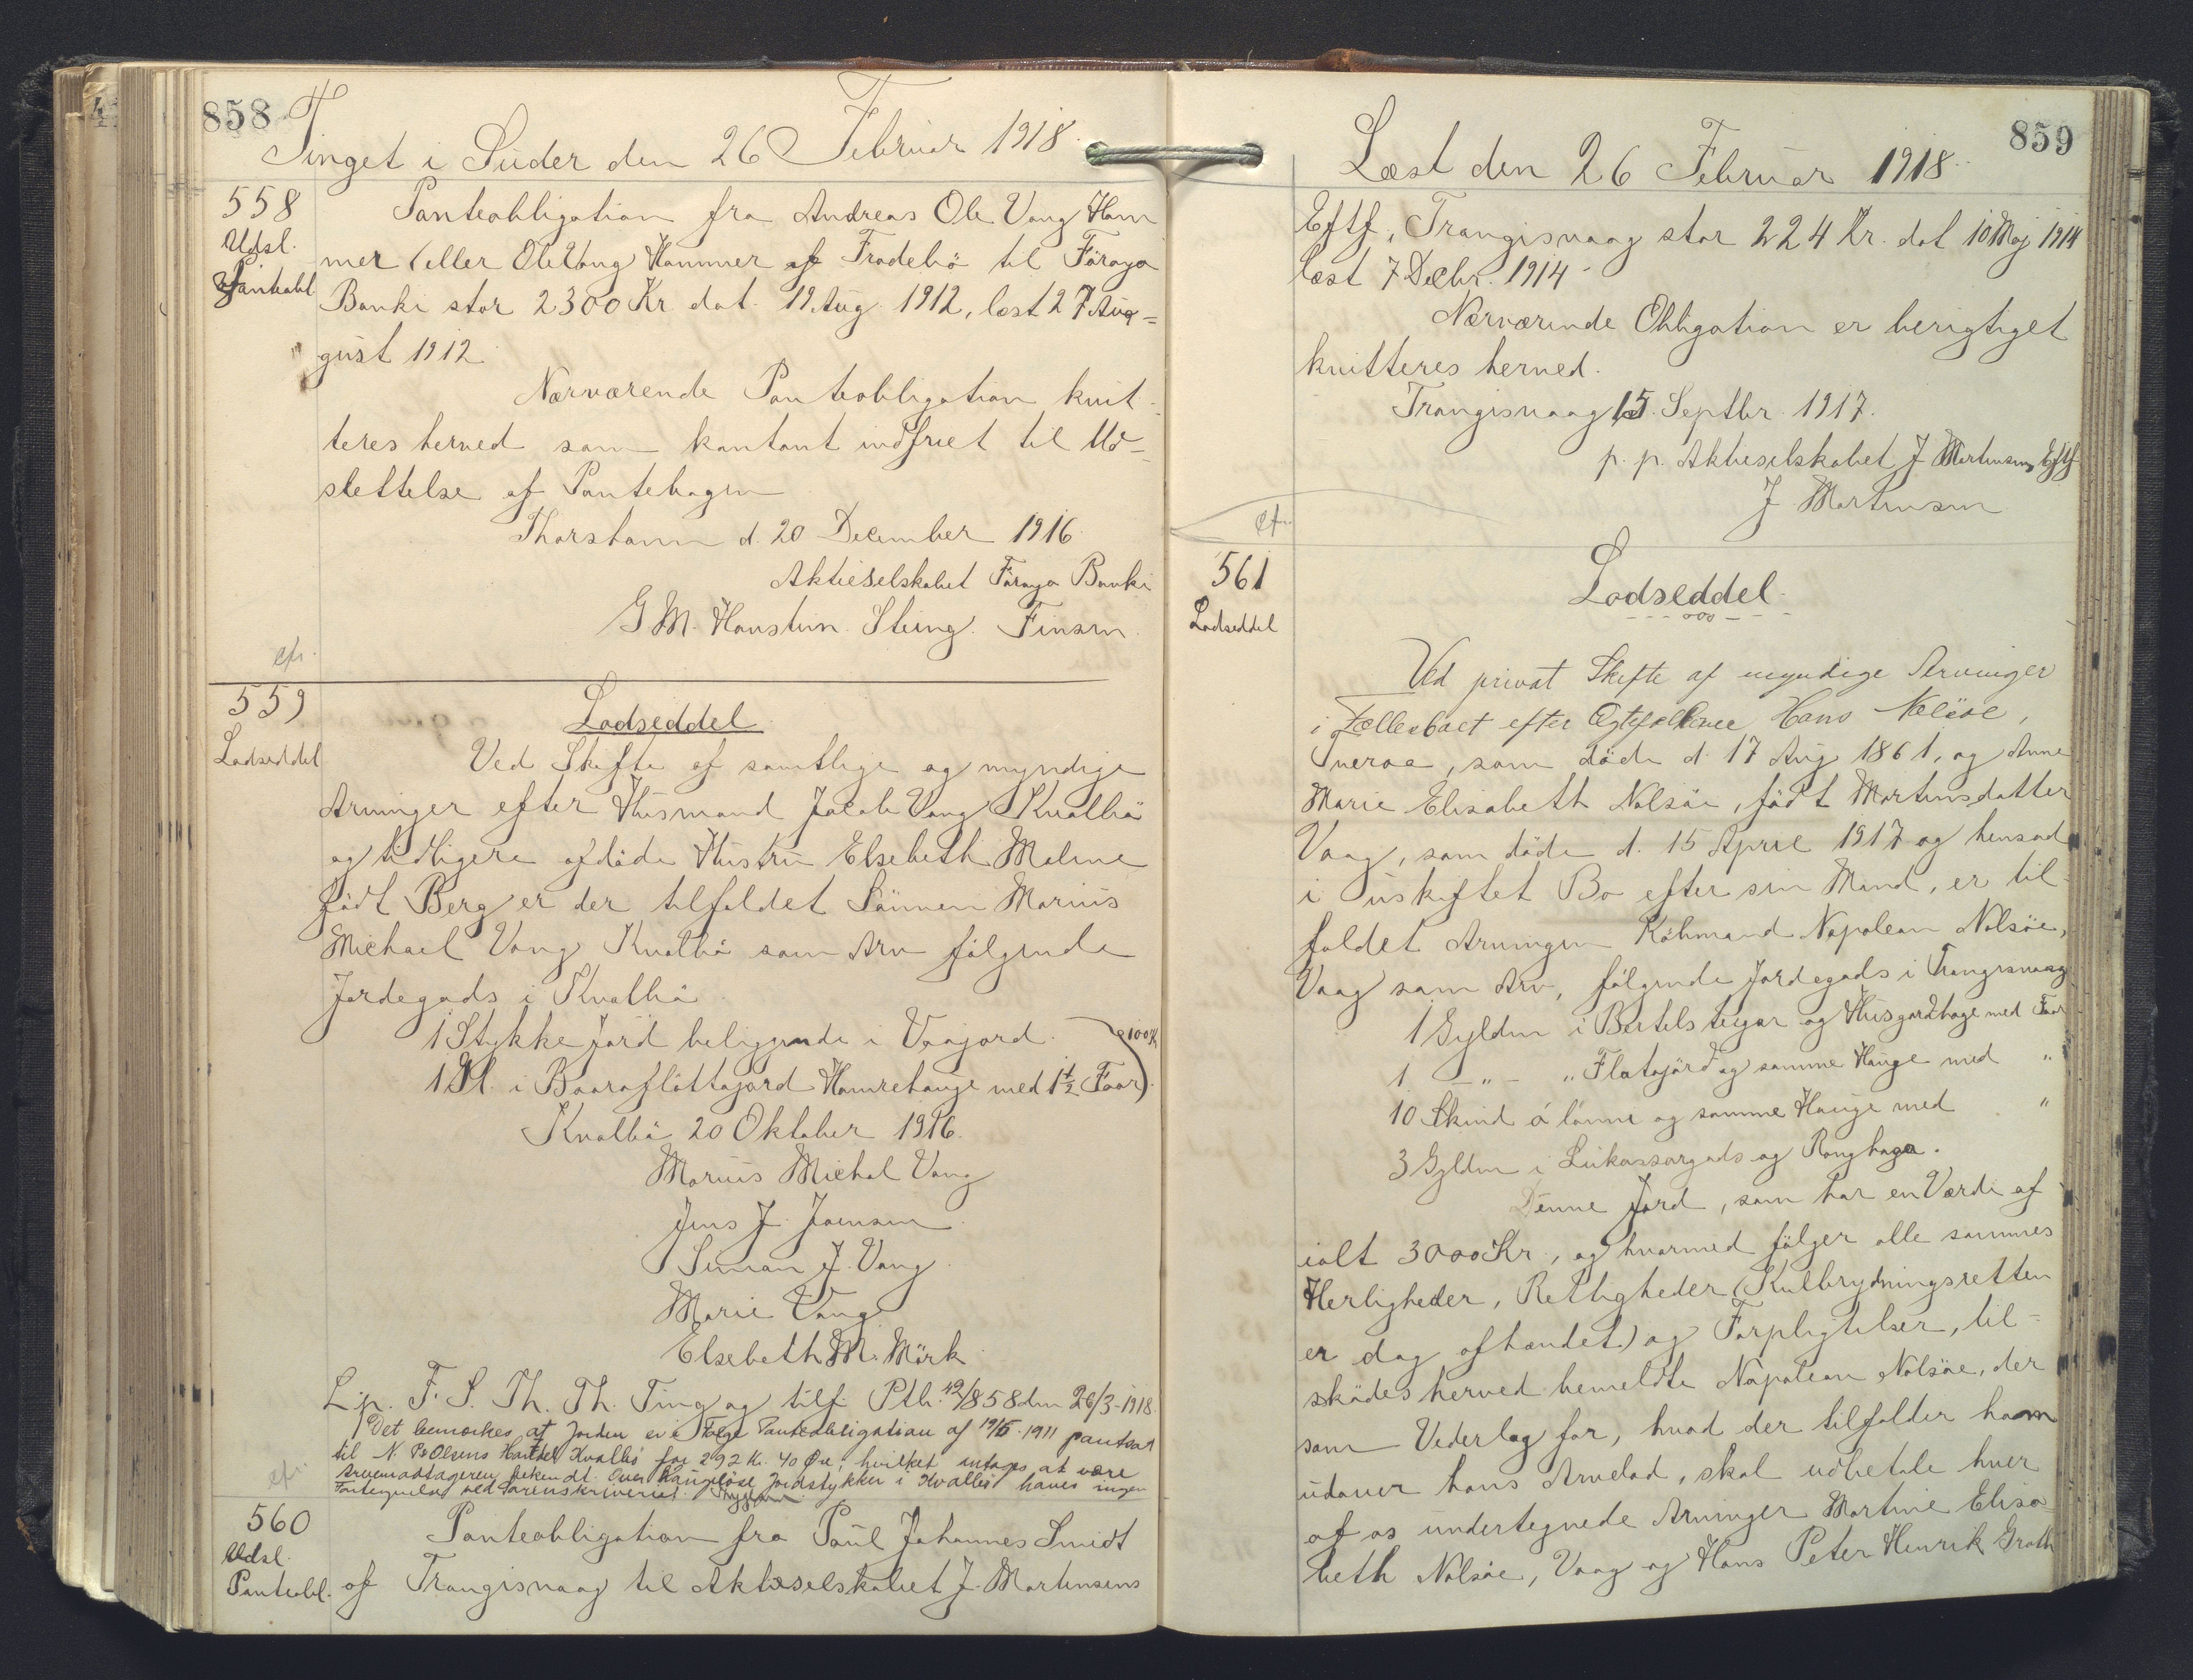 858
Tinget i Suder den 26 Februar 1918.
558
Udsl.
Panteobl
Panteobligation fra Andreas Ole Vang Ham
mer (eller Ole Vang Hammer af Frodebö til Föroya
Banki stor 2300 Kr dat. 19 Aug. 1912, læst 27 Aug=
gust 1912.
Nærværende Panteobligation kvit-
teres herved som kontant indfriet til Ud-
slettelse af Pantebogen
Thorshavn d. 20 December 1916.
Aktieselskabet Föroya Banki
Finsen.
cfr.
559
Lodseddel
Lodseddel
Ved Skifte af samtlige og myndige
Arvinger efter Husmand Jacob Vang Kvalbö
og tidligere afdöde Hustru Elsebeth Maline
födt Berg er der tilfaldet Sönnen Marius
Michael Vang Kvalbö som Arv fölgende
Jordegods i Kvalbö
1 Stykke Jord beliggende i Vaajord.
100 Kr
1 Gl. i Boaraflöttajord Hamrehauge med 1½ Faar.
Kvalbö 20 Oktober 1916.
Marius Michal Vang
Jens J. Joensen
Simon J. Vang.
Marie Vang
Elsebeth M. Mörk
L. p. F. S. Th. Th. Ting og tilf. Ptb. 42/858 den 26/3-1918.
Det bemærkes at Jorden er i Følge Panteobligation af 19/5-1911 pantsat
til N. P. Olsens Handel Kvalbö for 292 Kr. 40 Øre, hvilket antages at være
Arvemodtageren bekendt. Over haugeløse Jordstykker i Kvalbö haves ingen
Fortegnelse ved Sorenskriveriet.
cfr.
560
Udsl.
Panteobl.
Panteobligation fra Paul Johannes Smidt
af Trangisvaag til Aktieselskabet J. Mortensens
859
Læst den 26 Februar 1918.
Eftf, Trangisvaag stor 224 Kr. dat 10 Maj 1914
læst 7 Decbr. 1914.
Nærværende Obligation er berigtiget
kvitteres herved.
Trangisvaag 15. Septbr. 1917.
p. p. Aktieselskabet J Mortensens Eftf
J Mortensen
cfr.
561
Lodseddel
Lodseddel.
Ved privat Skifte af myndige Arvinger
i Fællesboet efter Ægtefællerne Hans Nolsöe,
Tveraa, som döde d. 17 Aug 1861, og Anne
Marie Elisabeth Nolsöe, födt Mortensdatter
Vaag, som döde d. 15 April 1917 og hensad
i uskiftet Bo efter sin Mand, er til-
faldet Arvingen Köbmand Napoleon Nolsöe,
Vaag som Arv, fölgende Jordegods i Trangisvaag
1 Gylden i Bertelsteigar og Husgardhage med Faar
1 -"- " Flatajörd og samme Hauge med "
10 Skind á lönni og samme Hauge med "
3 Gylden i Lukassargads og Ranghaga.
Denne Jord, som har en Værdi af
ialt 3000 Kr., og hvormed fölger alle sammes
Herligheder, Rettigheder (Kulbrydningsretten
er dog afhændet) og Forpligtelser, til-
skødes herved bemeldte Napoleon Nolsöe, der
som Vederlag for, hvad der tilfalder ham
udover hans Arvelod, skal udbetale hver
af os undertegnede Arvinger Martine Elisa-
beth Nolsöe, Vaag og Hans Peter Henrik Groth